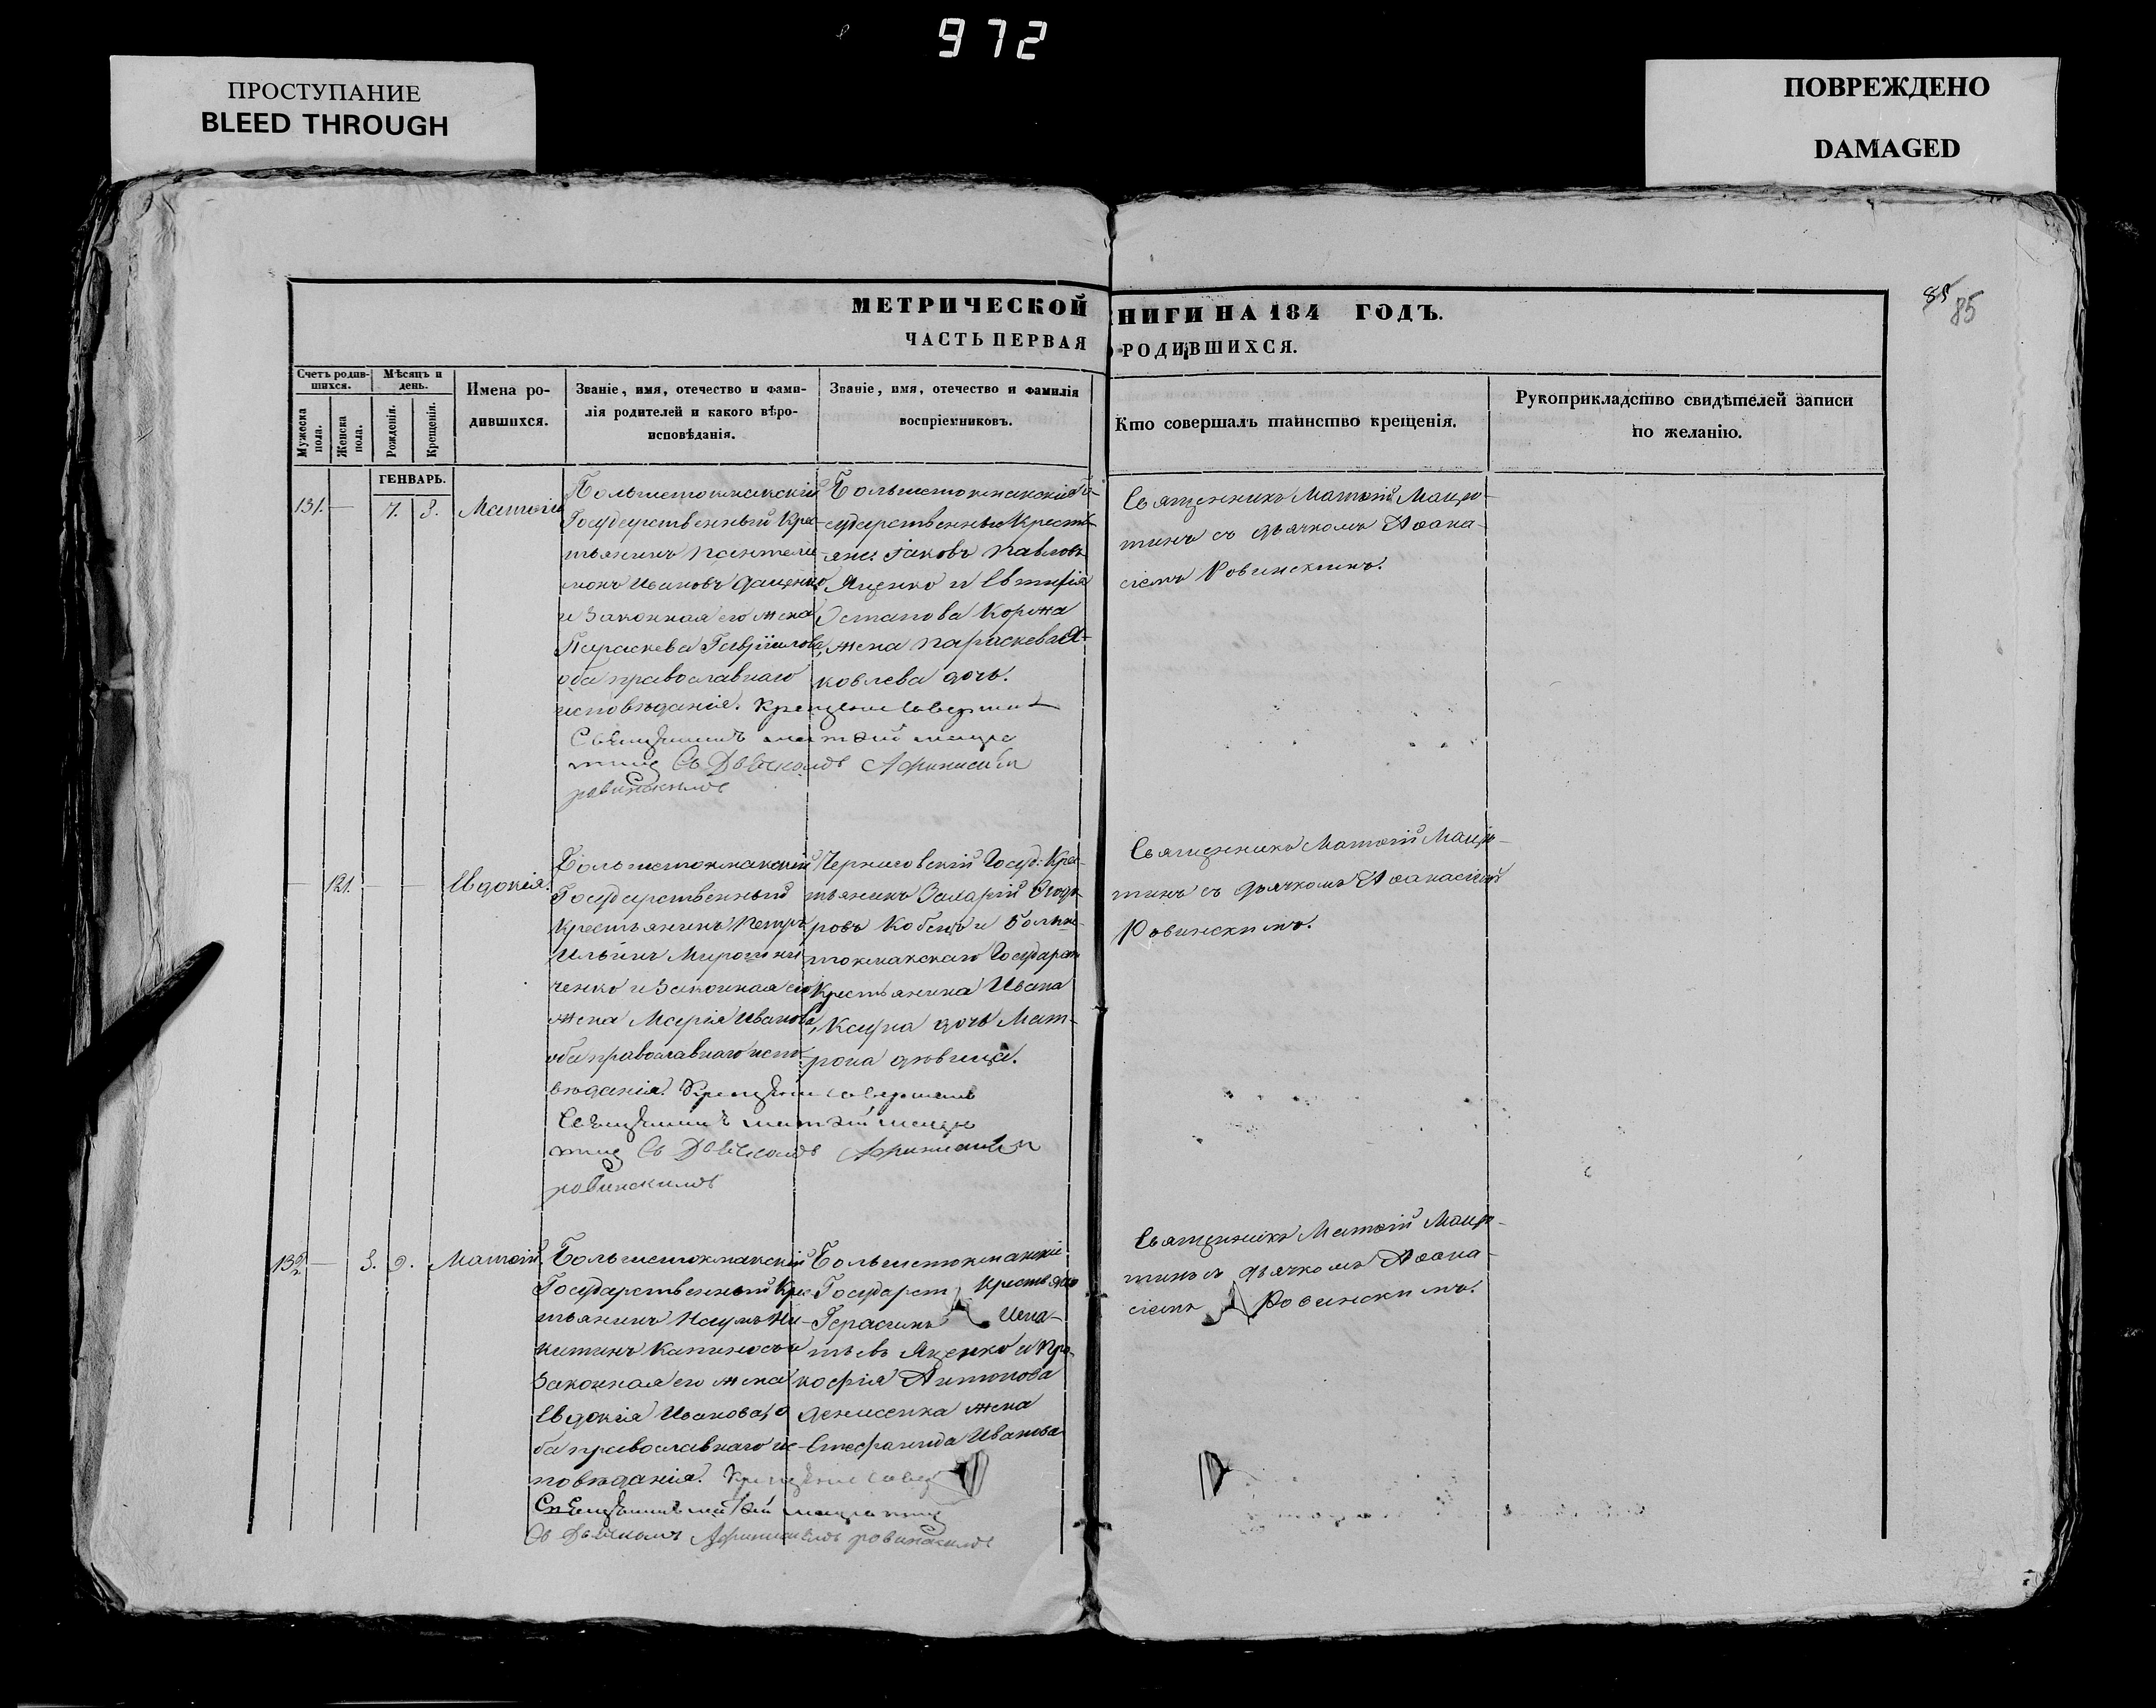 972
ПРОСТУПАНИЕ
BLEED THROUGH
ПОВРЕЖДЕНО
DAMAGED
85 85
МЕТРИЧЕСКОЙ НИГИ НА 184 ГОДЪ.
ЧАСТЬ ПЕРВАЯ О РОДИВШИХСЯ.
Счетъ родив-
шихся.
Мужеска пола.
Женска пола.
Мѣсяцъ и
день.
Рожденія.
Крещенія.
Имена ро-
дившихся.
Званіе, имя, отечество и фами-
лія родителей и какого вѣро-
исповѣданія.
Званіе, имя, отечество и фамилія
воспріемниковъ.
Кто совершалъ таинство крещенія.
Рукоприкладство свидѣтелей записи
по желанію.
ГЕНВАРЬ.
131. — 7. 8. Матѳій
Большетокмакскій
Государственный Крес-
тьянинъ Пантелей-
монъ Ивановъ Даценко
и Законная его жена
Параскева Гавріилова,
оба православнаго
исповѣданія. Крещеніе совершал
Священникъ матѳий мацю
тинъ Съ Дьячкомъ Афанасием
ровинскимъ
Большетокмакскіе Го-
сударственные Кресть-
яне: Іаковъ Павловъ
Яценко и Евтифія
Остапова Коржа
жена Параскева Я-
ковлева дочь.
Священникъ Матѳій Мацю-
тинъ съ дьячкомъ Аѳана-
сіемъ Ровинскимъ.
— 121. — — Евдокія.
Большетокмакскій
Государственный
Крестьянинъ Петръ
Ильинъ Мирошни-
ченко и Законная его
жена Марія Иванова,
оба православнаго испо-
вѣданія. Крещение совершалъ
Священникъ матѳий мацю
тинъ Съ Дьячкомъ Афанасием
ровинскимъ
Черниговскій Госуд: Крес-
тьянинъ Захарій Ѳедо-
ровъ Кобецъ и Больше-
токмакскаго Государст:
Крестьянина Ивана
дочь Мат-
рона дѣвица.
Священникъ Матѳій Мацю-
тинъ съ дьячкомъ Аѳанасіемъ
Ровинскимъ.
132 — 8. 9. Матѳій.
Большетокмакскій
Государственный Крес-
тьянинъ Наумъ Ни-
китинъ Капиносъ и
Законная его жена
Евдокія Иванова, о-
ба православнаго ис-
повѣданія. Крещение совер
Священникъ матѳий мацютинъ
Съ Дьячкомъ Афанасиемъ ровинскимъ
Большетокмакскіе
Государст Крестьяне
Герасимъ Игна-
тьевъ Яценко и Про-
кофія Антонова
Денисенка жена
Стефанида Иванова
Священникъ Матѳій Мацю-
тинъ съ дьячкомъ Аѳана-
сіемъ Ровинскимъ.